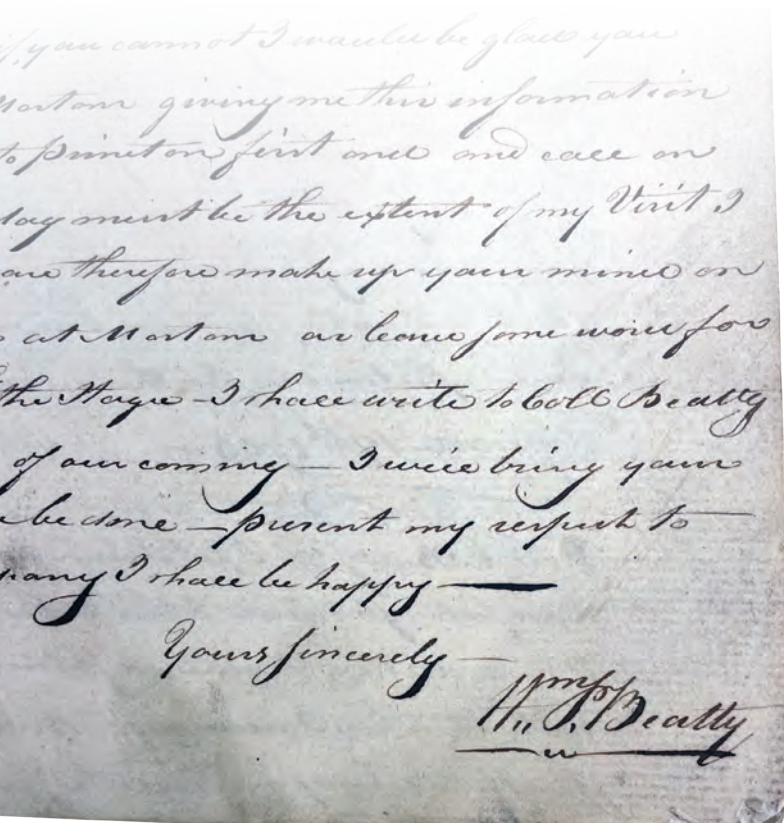 if you cannot I would be glad you
giving me this information
to princeton first and and call on
day must be the extent of my Visit I
are therefore make up your mind on
at or leave some word for
the Stage – I shall write to Coll Beatty
of our coming – I will bring your
be done – present my respects to
I shall be happy —
Yours sincerely –
Wm P. Beatty